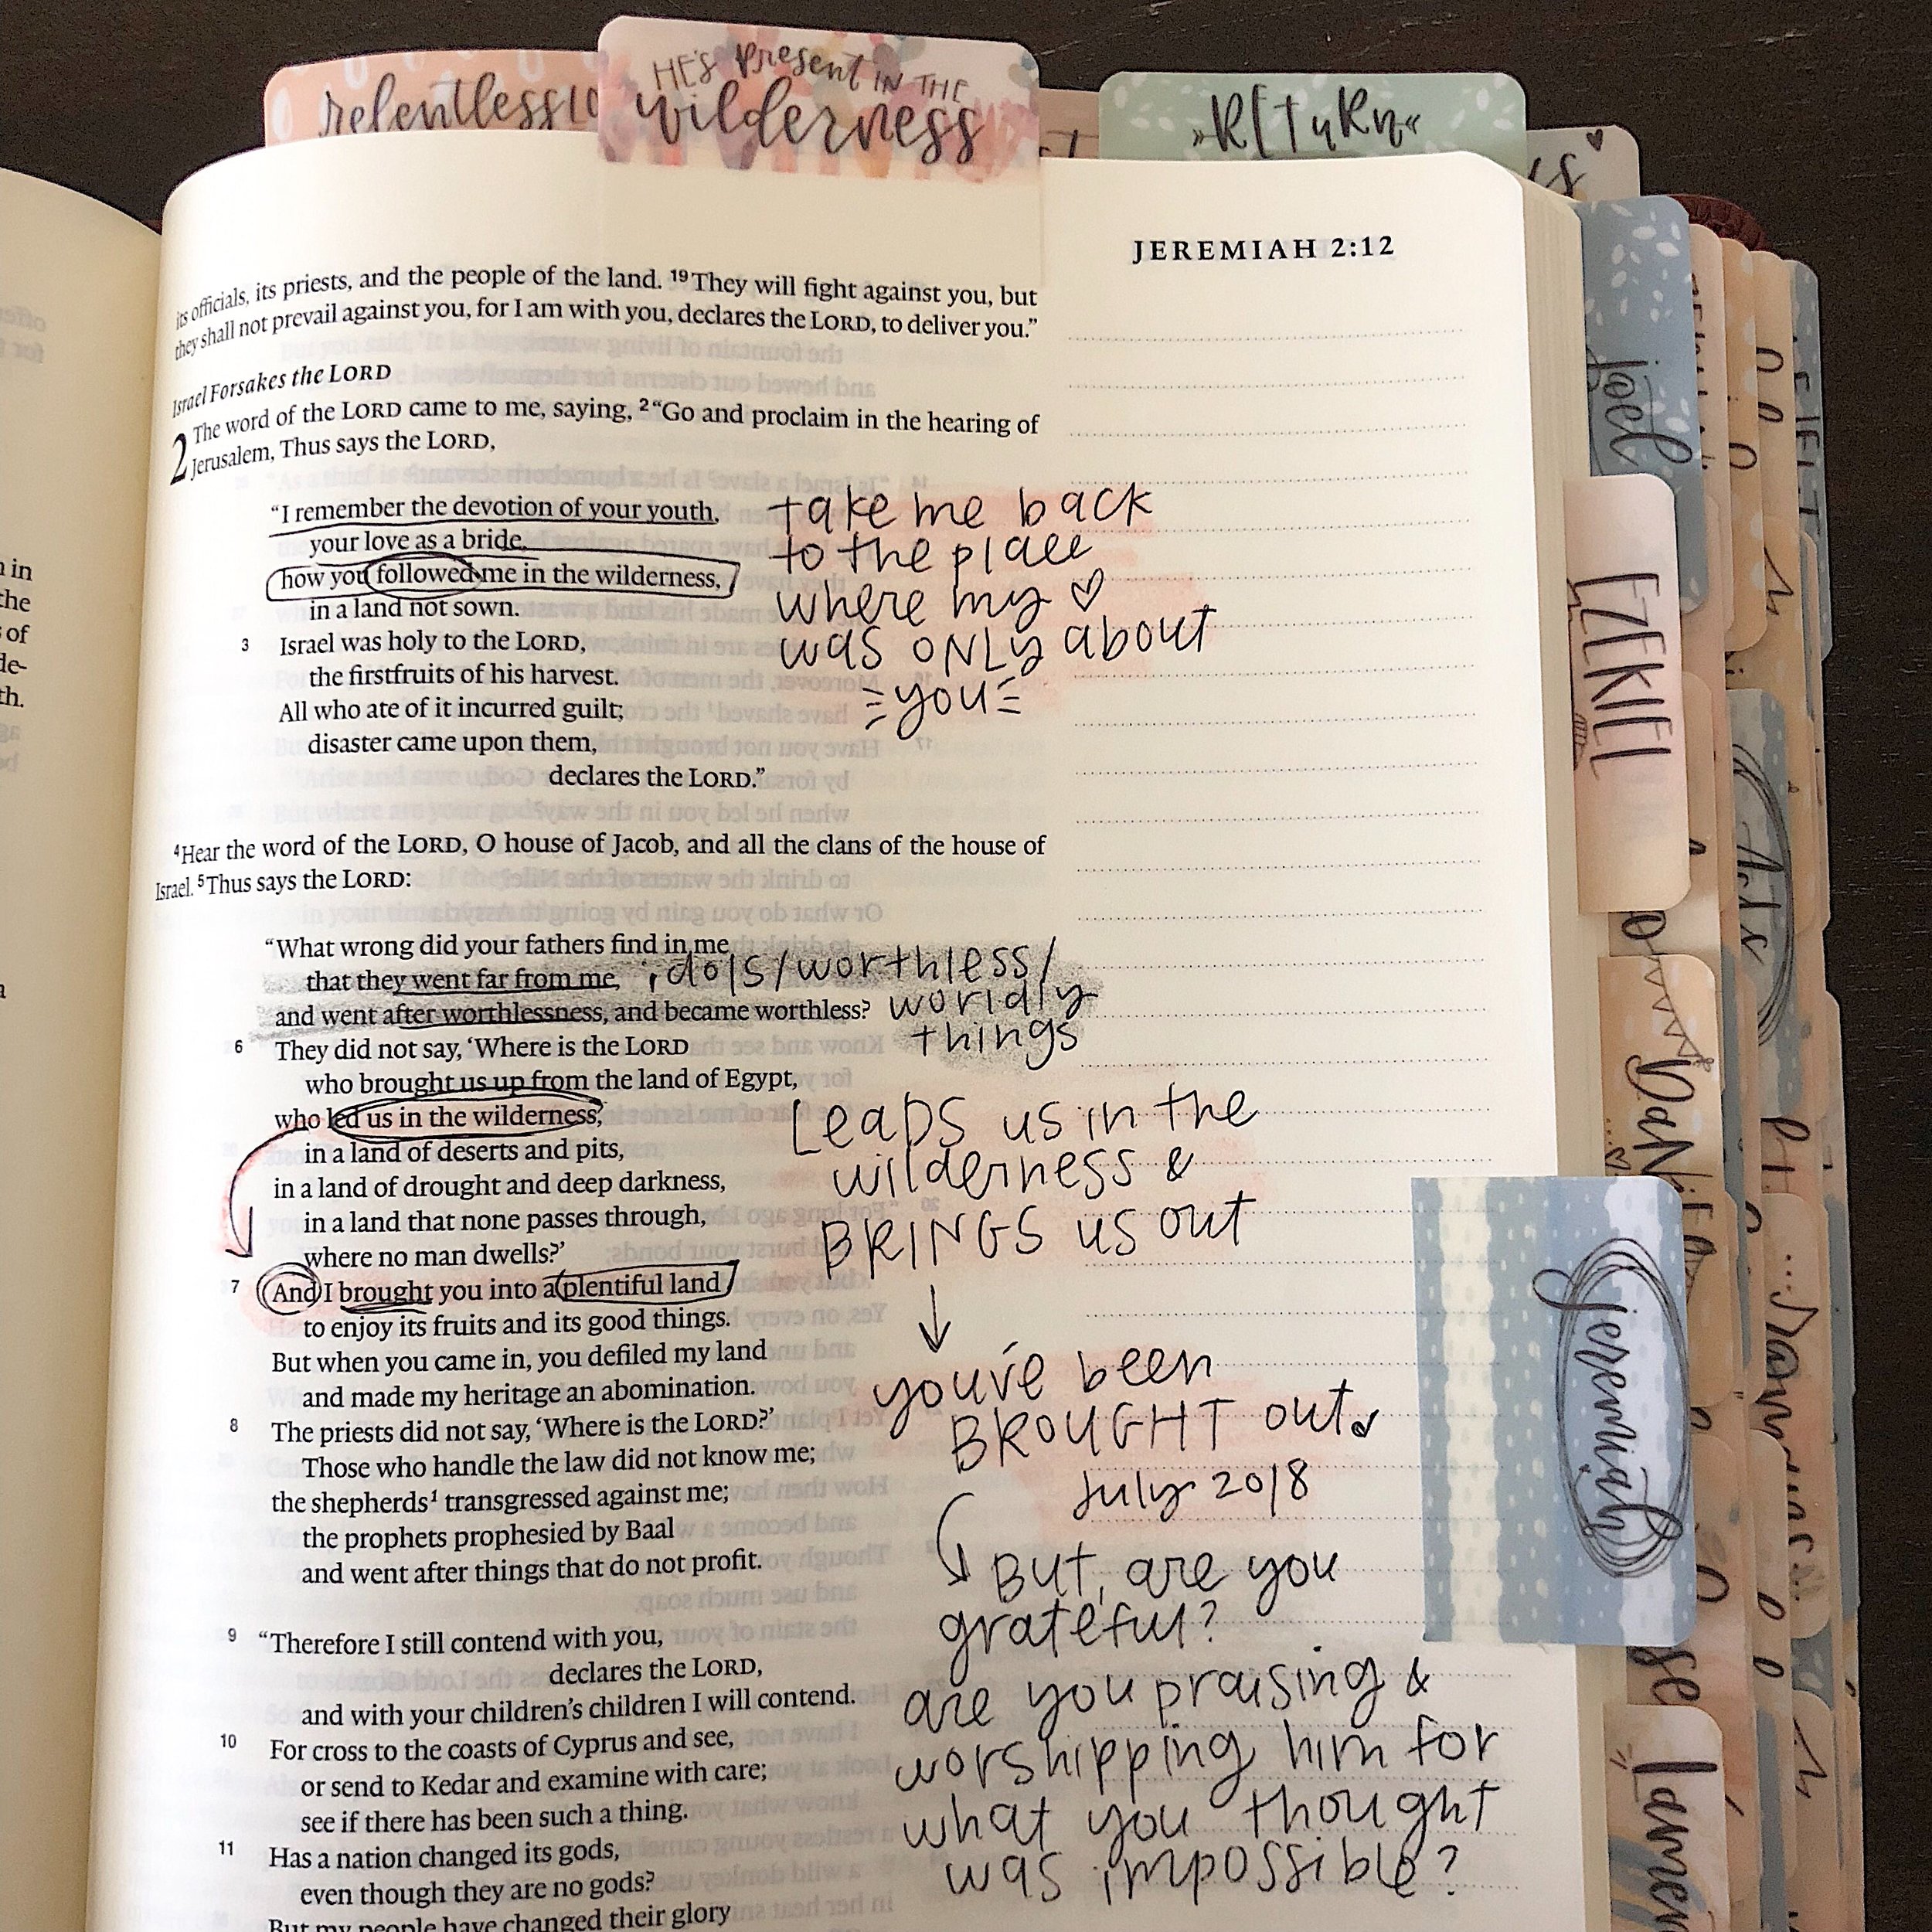 HE'S Present IN THE
wilderness
»RETURN«
JEREMIAH 2:12
its officials, its priests, and the people of the land. 19 They will fight against you, but
they shall not prevail against you, for I am with you, declares the LORD, to deliver you.”
Israel Forsakes the LORD
2 The word of the LORD came to me, saying, 2 “Go and proclaim in the hearing of
Jerusalem, Thus says the LORD,
“I remember the devotion of your youth,
your love as a bride,
how you followed me in the wilderness,
in a land not sown.
3 Israel was holy to the LORD,
the firstfruits of his harvest.
All who ate of it incurred guilt;
disaster came upon them,
declares the LORD.”
take me back
to the place
where my ♡
was ONLY about
you
4 Hear the word of the LORD, O house of Jacob, and all the clans of the house of
Israel. 5 Thus says the LORD:
“What wrong did your fathers find in me
that they went far from me,
and went after worthlessness, and became worthless?
idols/worthless/
worldly
things
6 They did not say, ‘Where is the LORD
who brought us up from the land of Egypt,
who led us in the wilderness,
in a land of deserts and pits,
in a land of drought and deep darkness,
in a land that none passes through,
where no man dwells?’
7 And I brought you into a plentiful land
to enjoy its fruits and its good things.
But when you came in, you defiled my land
and made my heritage an abomination.
8 The priests did not say, ‘Where is the LORD?’
Those who handle the law did not know me;
the shepherds1 transgressed against me;
the prophets prophesied by Baal
and went after things that do not profit.
LEADS us in the
wilderness &
BRINGS us out
you've been
BROUGHT out
July 2018
But, are you
grateful?
are you praising &
worshipping him for
what you thought
was impossible?
9 “Therefore I still contend with you,
declares the LORD,
and with your children’s children I will contend.
10 For cross to the coasts of Cyprus and see,
or send to Kedar and examine with care;
see if there has been such a thing.
11 Has a nation changed its gods,
even though they are no gods?
But my people have changed their glory
Joel
EZEKIEL
Acts
Daniel
jeremiah